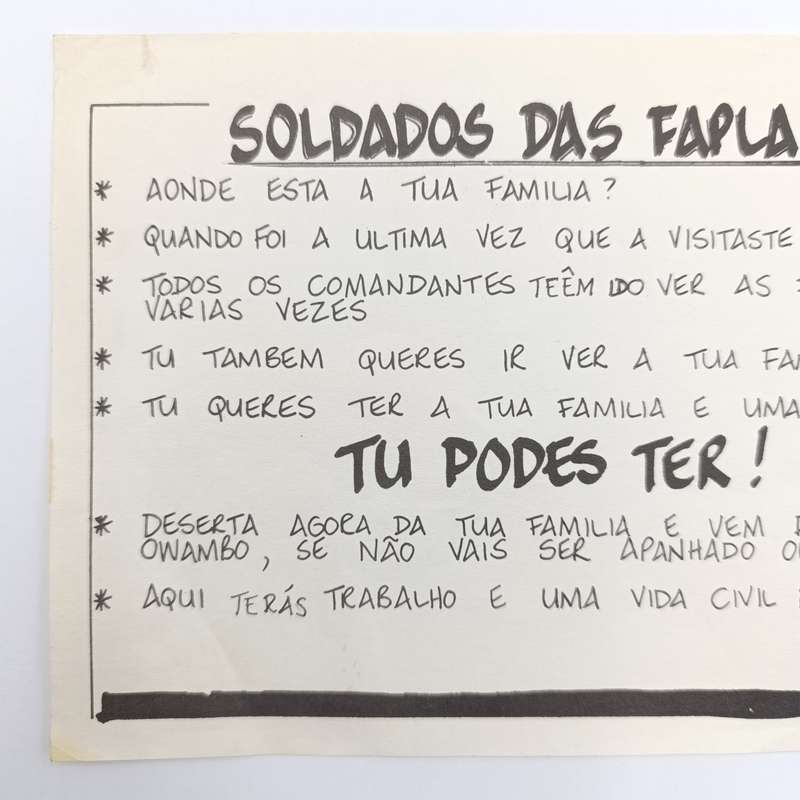 SOLDADOS DAS FAPLA
* AONDE ESTA A TUA FAMILIA?
* QUANDO FOI A ULTIMA VEZ QUE A VISITASTE
* TODOS OS COMANDANTES TEÊM IDO VER AS
VARIAS VEZES
* TU TAMBEM QUERES IR VER A TUA
* TU QUERES TER A TUA FAMILIA E UMA
TU PODES TER!
* DESERTA AGORA DA TUA FAMILIA E VEM
OWAMBO, SE NÃO VAIS SER APANHADO
* AQUI TERÁS TRABALHO E UMA VIDA CIVIL